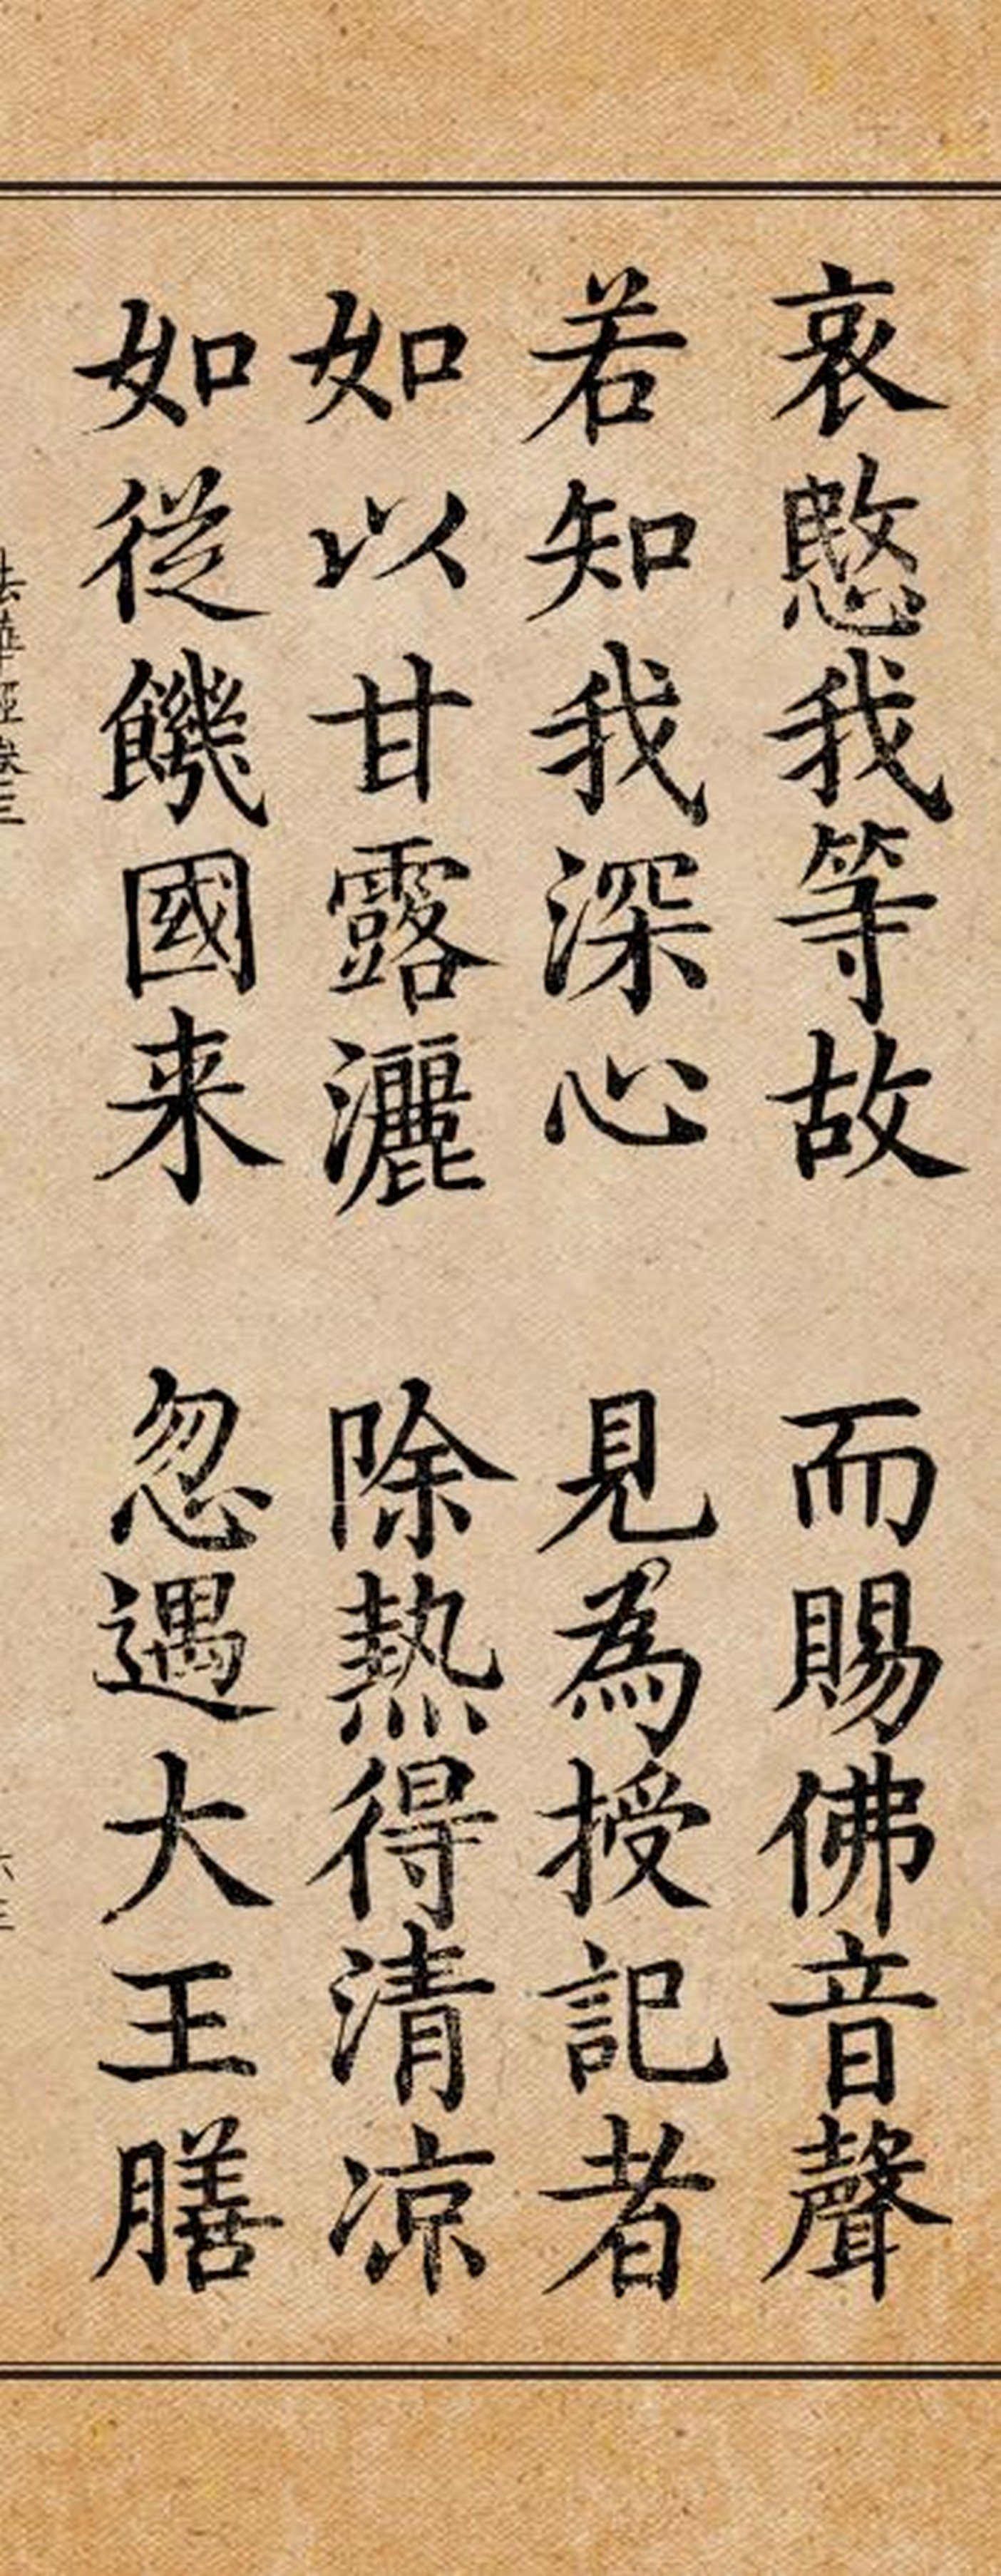 哀愍我等故 而賜佛音聲
若知我深心 見為授記者
如以甘露灑 除熱得清涼
如從饑國来 忽遇大王膳
法華經卷三